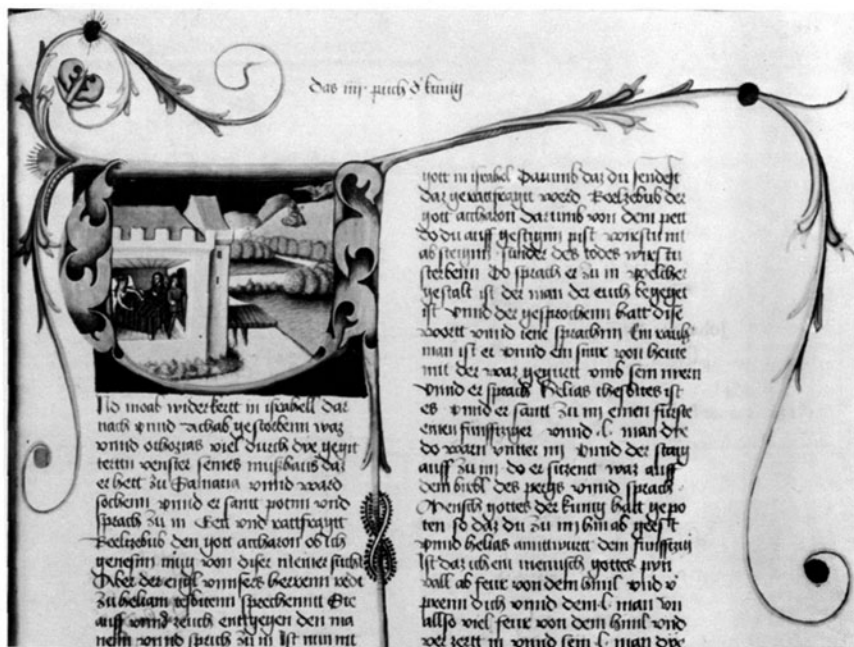 das iiij puch d' kunig
Nd moab widerkertt in israhell dar
nach vnnd Achab gestorbenn waz
vnnd othozias viel durch dye gegit
tertten venster seines mußhaus daz
er hett zu Samaria vnnd ward
siechenn vnnd er santt potnn vnd
sprach zu in Eett vnd rattfraygtt
Beelzebub den gott accharon ob ich
genesnn mug von diser meiner sucht
Aber der engl vnnsers herrenn redt
zu heliam tesbitenn sprechenntt Ste
auff vnnd zeuch enntgegen den ma
nenn vnnd sprich zu in Ist nun nit
gott in israhel Darumb daz du sendest
daz geratfraygt werd Beelzebub der
gott accharon darumb von dem pett
do du auff gestignn pist wirstu nit
ab steignn sunder des todes wirstu
sterbenn Do sprach er zu in welcher
gestalt ist der man der euch begegnet
ist vnnd der gesprochenn hatt dise
wortt vnnd iene sprachnn Ein rauch
man ist er vnnd ein fittne von heute
mit der waz gegurtt vmb sein niern
Vnnd er sprach Helias thesbites ist
es vnnd er santt zu im einen fürste
einen funffziger vnnd .l. man dye
do warn vntter im vnnd der staig
auff zu im do er sitzent waz auff
dem buhl des pergs vnnd sprach
Mensch gottes der kunig hatt gepo
ten so daz du zu im hin ab geest
vnnd helias anttwurtt dem funffzig
Ist daz ich ein mennsch gottes pynn
vall ab feur von dem himl vnd v'
prenn dich vnnd dem .l. man vn
allso viel feur von dem himl vnd
verzertt in vnnd sein .l. man dye